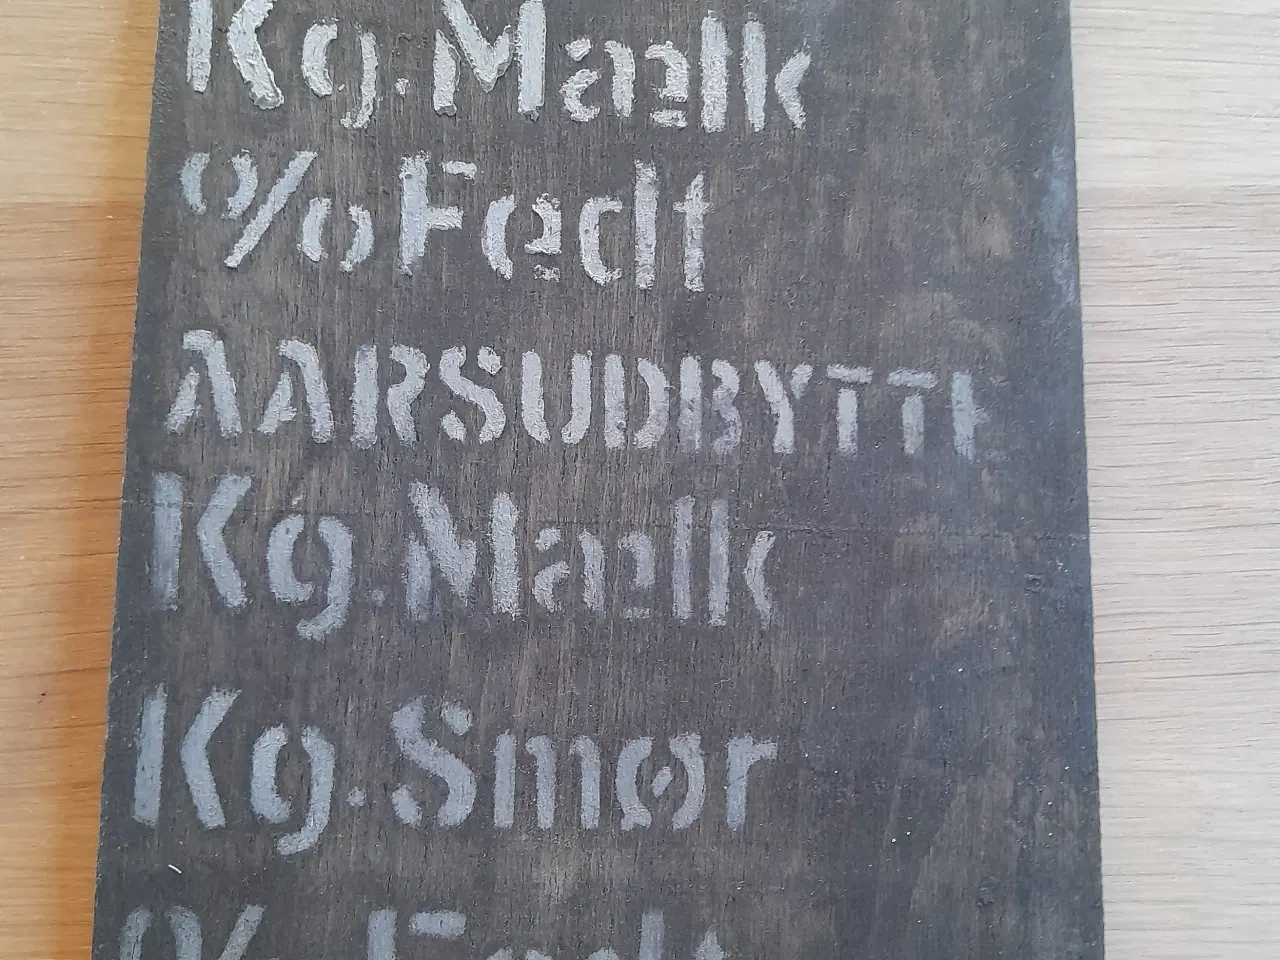 Kg. Mælk
% Fedt
AARSUDBYTTE
Kg. Mælk
Kg. Smør
% Fedt